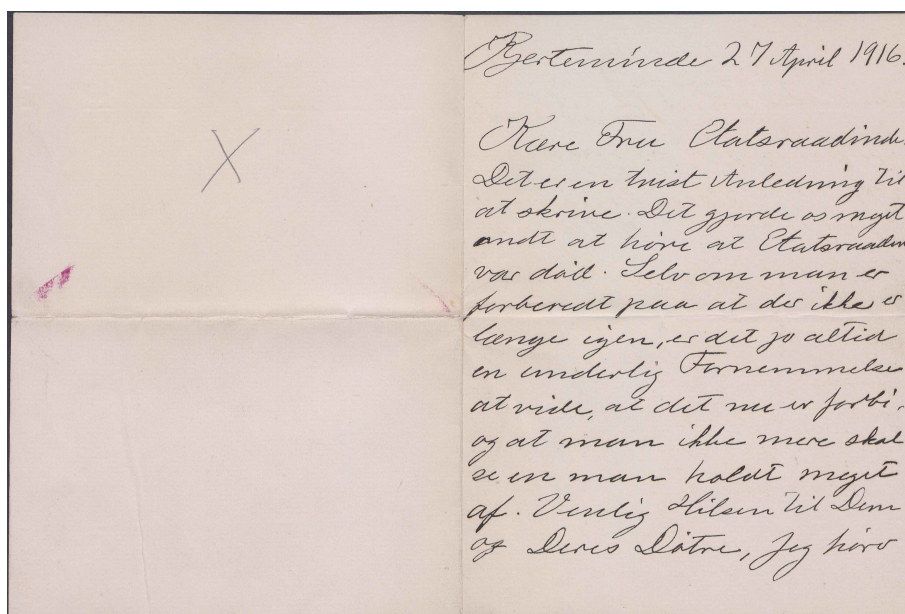 Kjerteminde 27 April 1916.
Kære Fru Etatsraadinde.
Det er en trist Anledning til
at skrive. Det gjorde os meget
ondt at høre at Etatsraaden
var død. Selv om man er
forberedt paa at der ikke er
længe igen, er det jo altid
en underlig Fornemmelse
at vide, at det nu er forbi,
og at man ikke mere skal
se en man holdt meget
af. Venlig Hilsen til Dem
og Deres Døtre, jeg hører